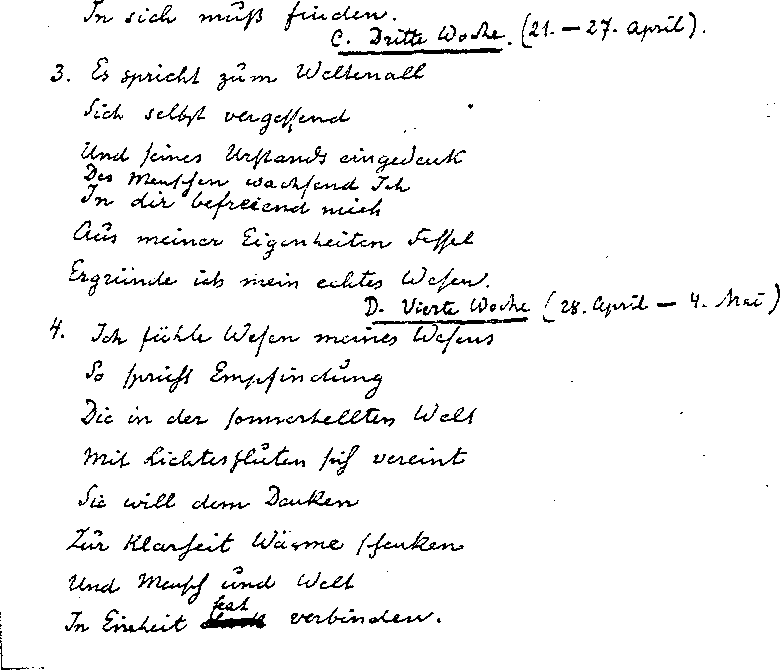 In sich muß finden.
C. Dritte Woche. (21. – 27. April).
3. Es spricht zum Weltenall
Sich selbst vergessend
Und seines Urstands eingedenk
Des Menschen wachsend Ich
In dir befreiend mich
Aus meiner Eigenheiten Fessel
Ergründe ich mein echtes Wesen.
D. Vierte Woche (28. April – 4. Mai)
4. Ich fühle Wesen meines Wesens
So spricht Empfindung
Die in der sonnerhellten Welt
Mit Lichtesfluten sich vereint
Sie will dem Denken
Zur Klarheit Wärme schenken
Und Mensch und Welt
fest
In Einheit verbinden.